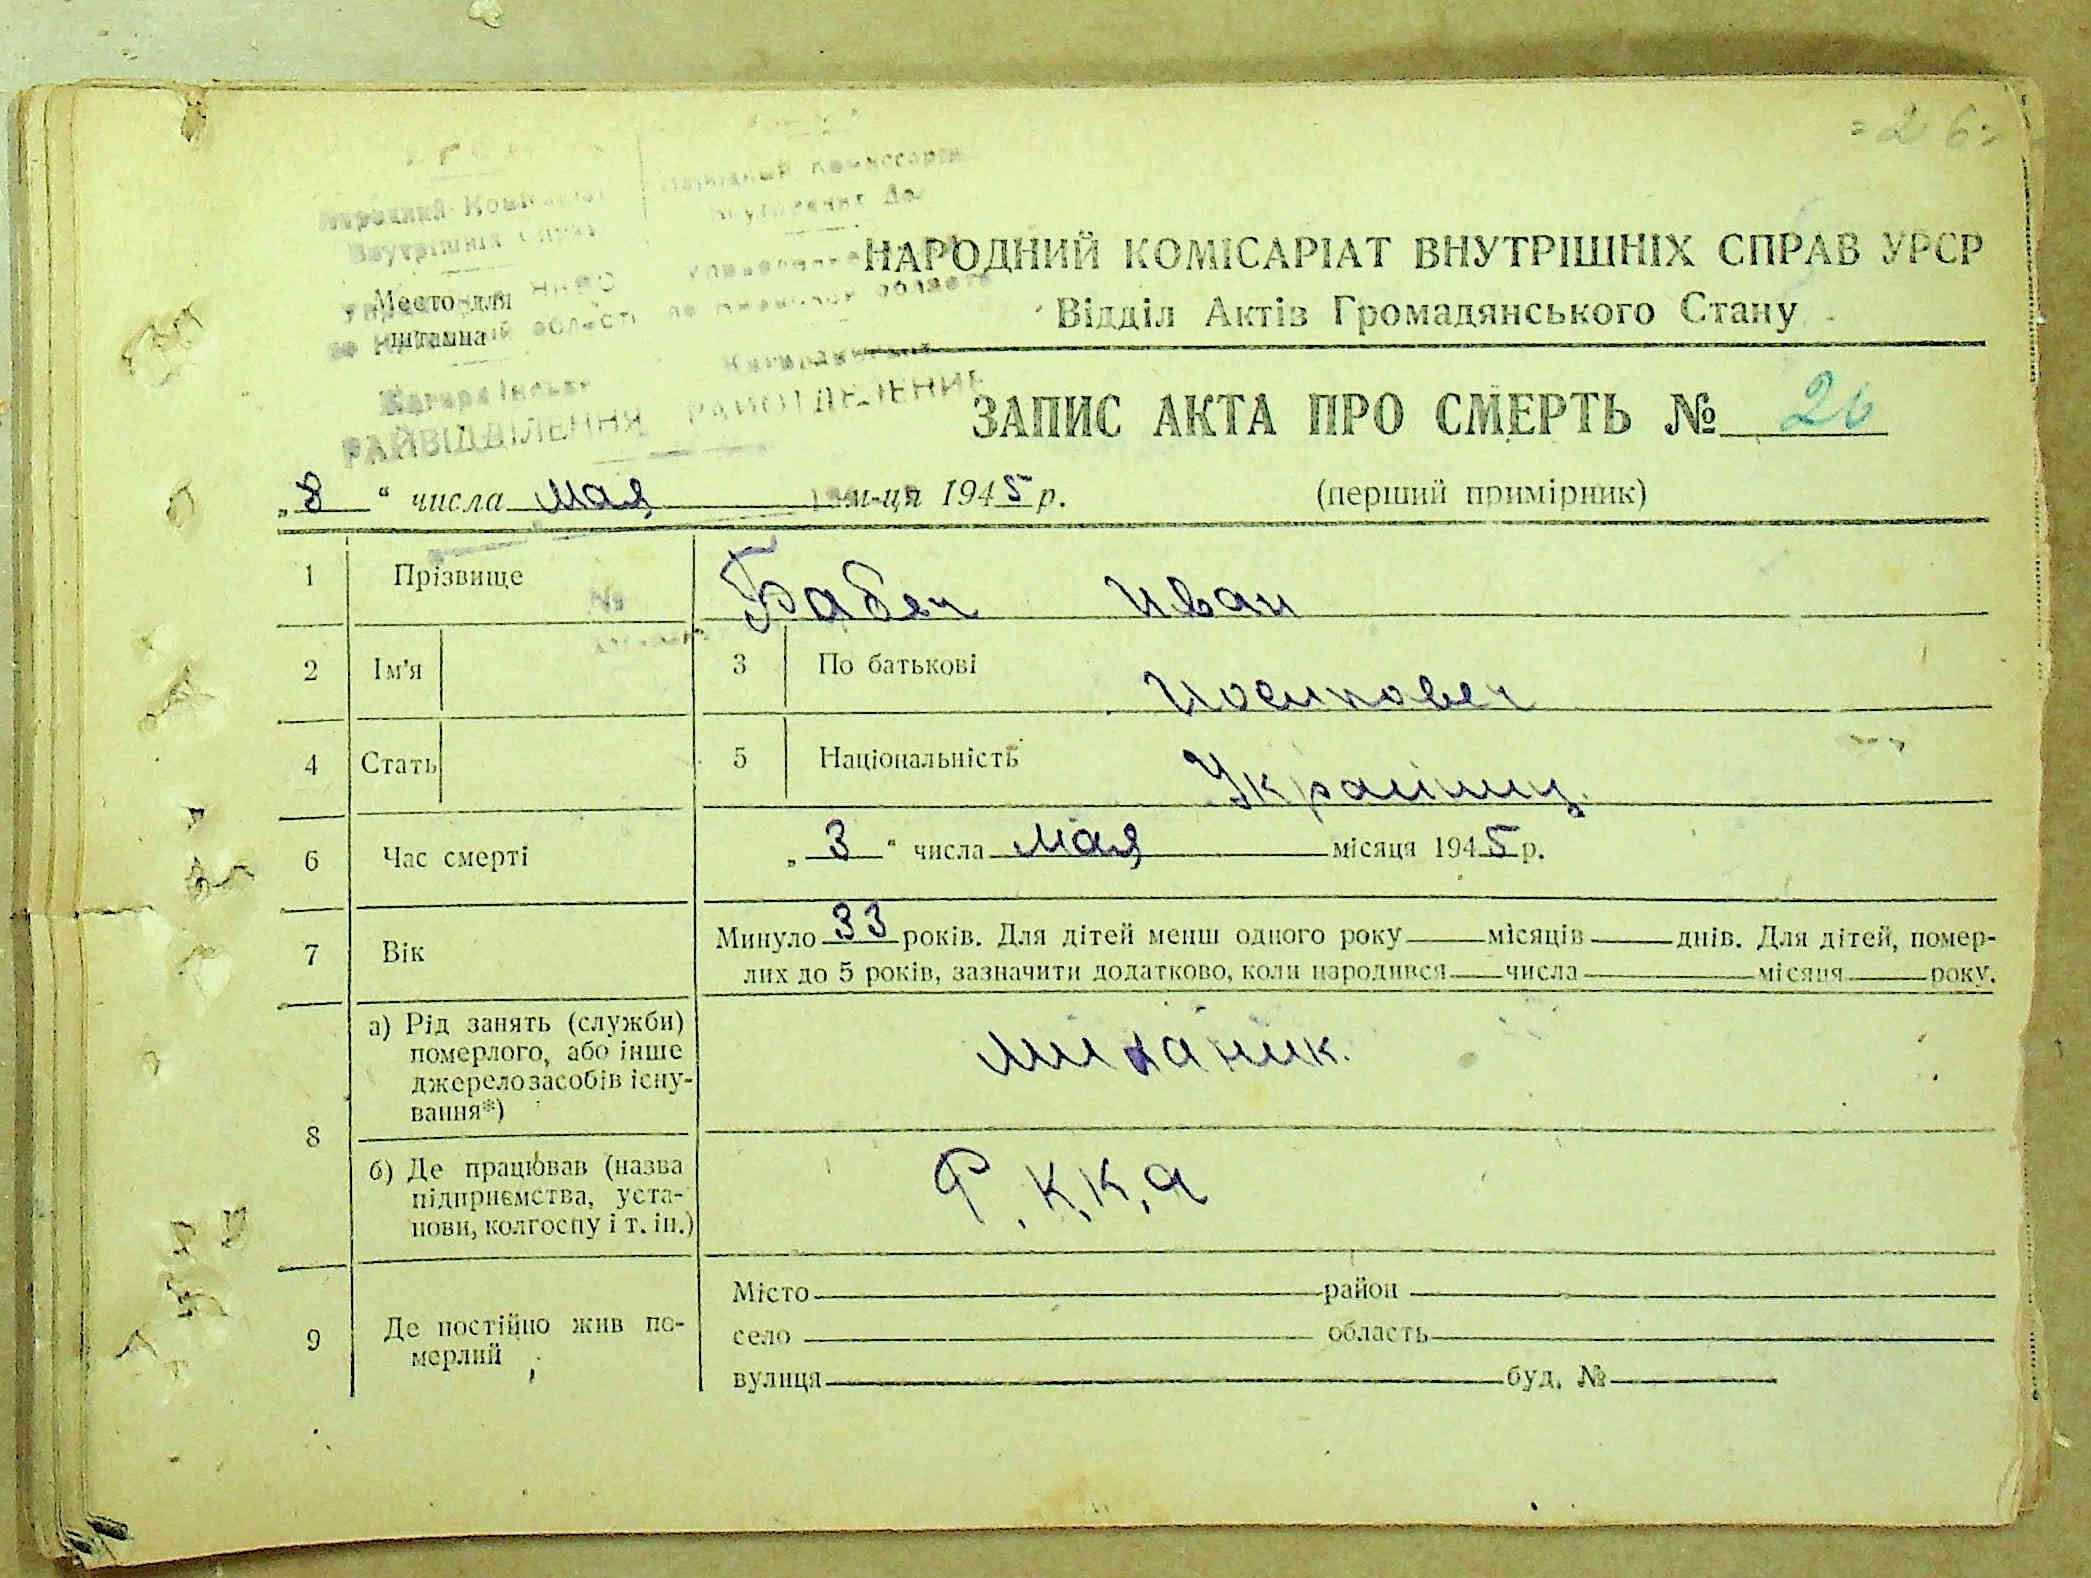 26
Народний Комісаріат
Внутрішніх Справ
НАРОДНИЙ КОМІСАРІАТ ВНУТРІШНІХ СПРАВ УРСР
Место для
штампа
Відділ Актів Громадянського Стану
РАЙВІДДІЛЕННЯ РАЙОТДЕЛЕНИЕ
ЗАПИС АКТА ПРО СМЕРТЬ № 26
„8“ числа мая м-ця 1945 р. (перший примірник)
1 Прізвище Бабич Иван
2 Ім'я 3 По батькові Иосипович
4 Стать 5 Національність Украінец
6 Час смерті „3“ числа мая місяця 1945 р.
7 Вік Минуло 33 років. Для дітей менш одного року місяців днів. Для дітей, помер-
лих до 5 років, зазначити додатково, коли народився числа місяця року.
8 а) Рід занять (служби)
померлого, або інше
джерело засобів існу-
вання*)
миханик.
б) Де працював (назва
підприємства, уста-
нови, колгоспу і т. ін.)
Р.К.К.А
9 Де постійно жив по-
мерлий
Місто район
село область
вулиця буд. №